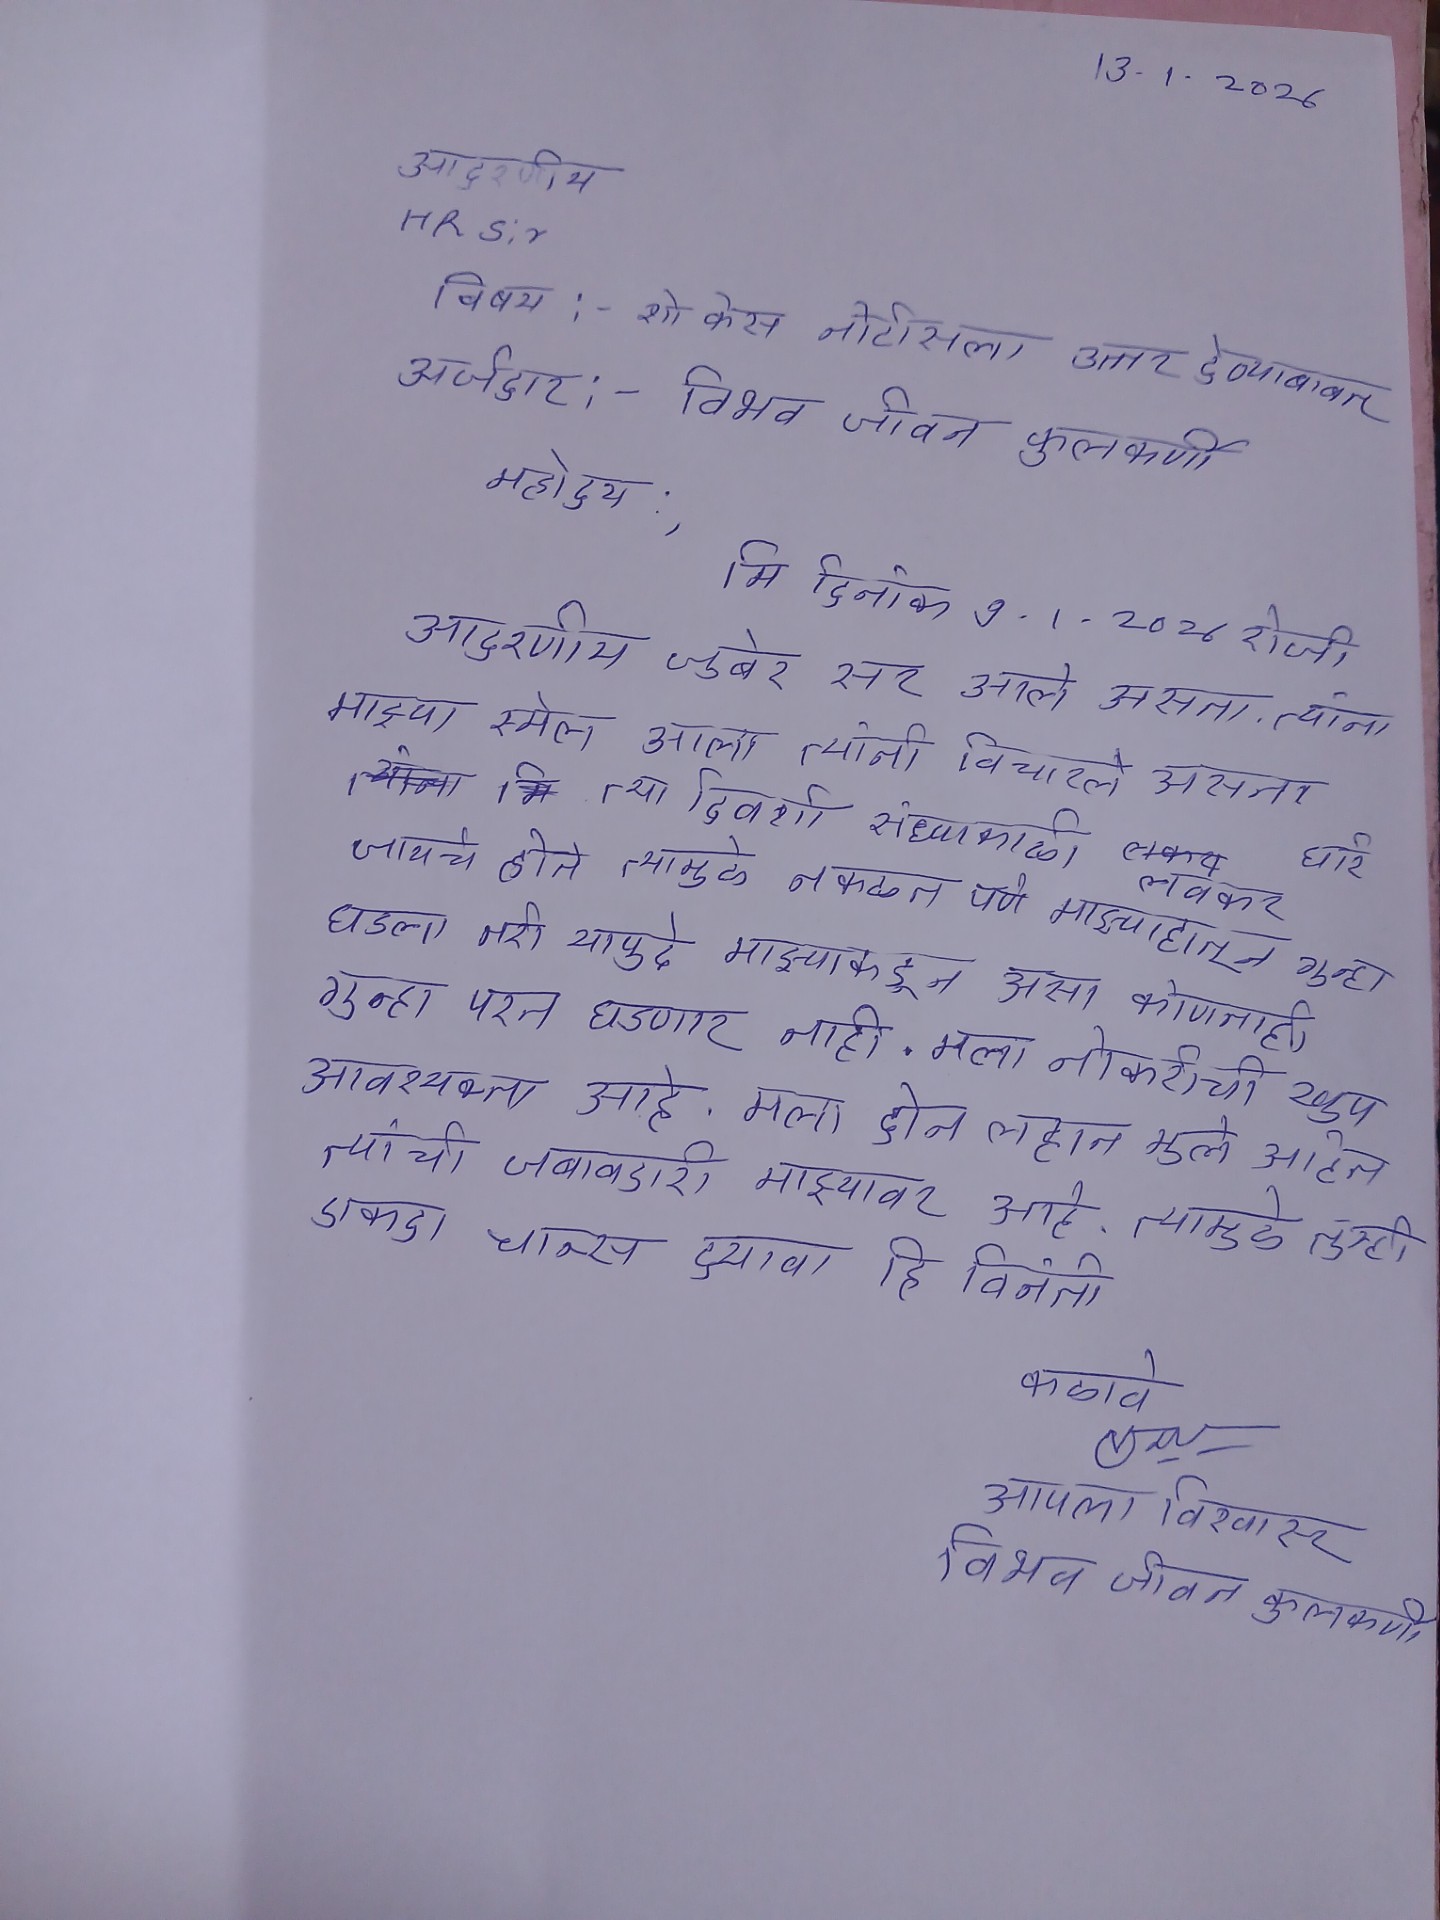 13-1-2026
आदरणीय
HR Sir
विषय :- शो केस नोटीसला उत्तर देण्याबाबत
अर्जदार :- विभव जीवन कुलकर्णी
महोदय :,
मि दिनांक 9-1-2026 रोजी
आदरणीय जुबेर सर आले असता. त्यांना
माझ्या स्मेल आला त्यांनी विचारले असता
त्या दिवशी संध्याकाळी लवकर घरि
जायचे होते त्यामुळे नकळत पणे माझ्याहातून गुन्हा
घडला तरी यापुढे माझ्याकडून असा कोणताही
गुन्हा परत घडणार नाही. मला नोकरीची खुप
आवश्यकता आहे. मला दोन लहान मुले आहेत
त्यांची जबाबदारी माझ्यावर आहे. त्यामुळे तुम्ही
एकदा चान्स दयावा हि विनंती
कळावे
आपला विश्वासू
विभव जीवन कुलकर्णी